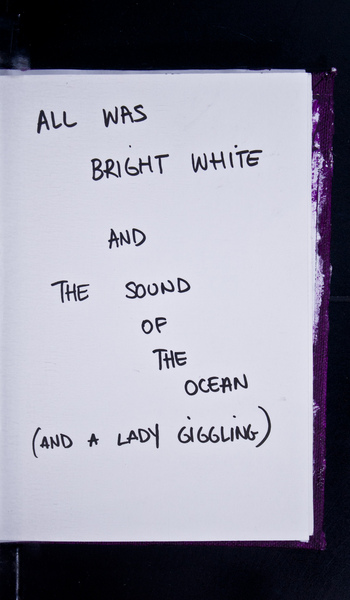 ALL WAS
BRIGHT WHITE
AND
THE SOUND
OF
THE
OCEAN
(AND A LADY GIGGLING)